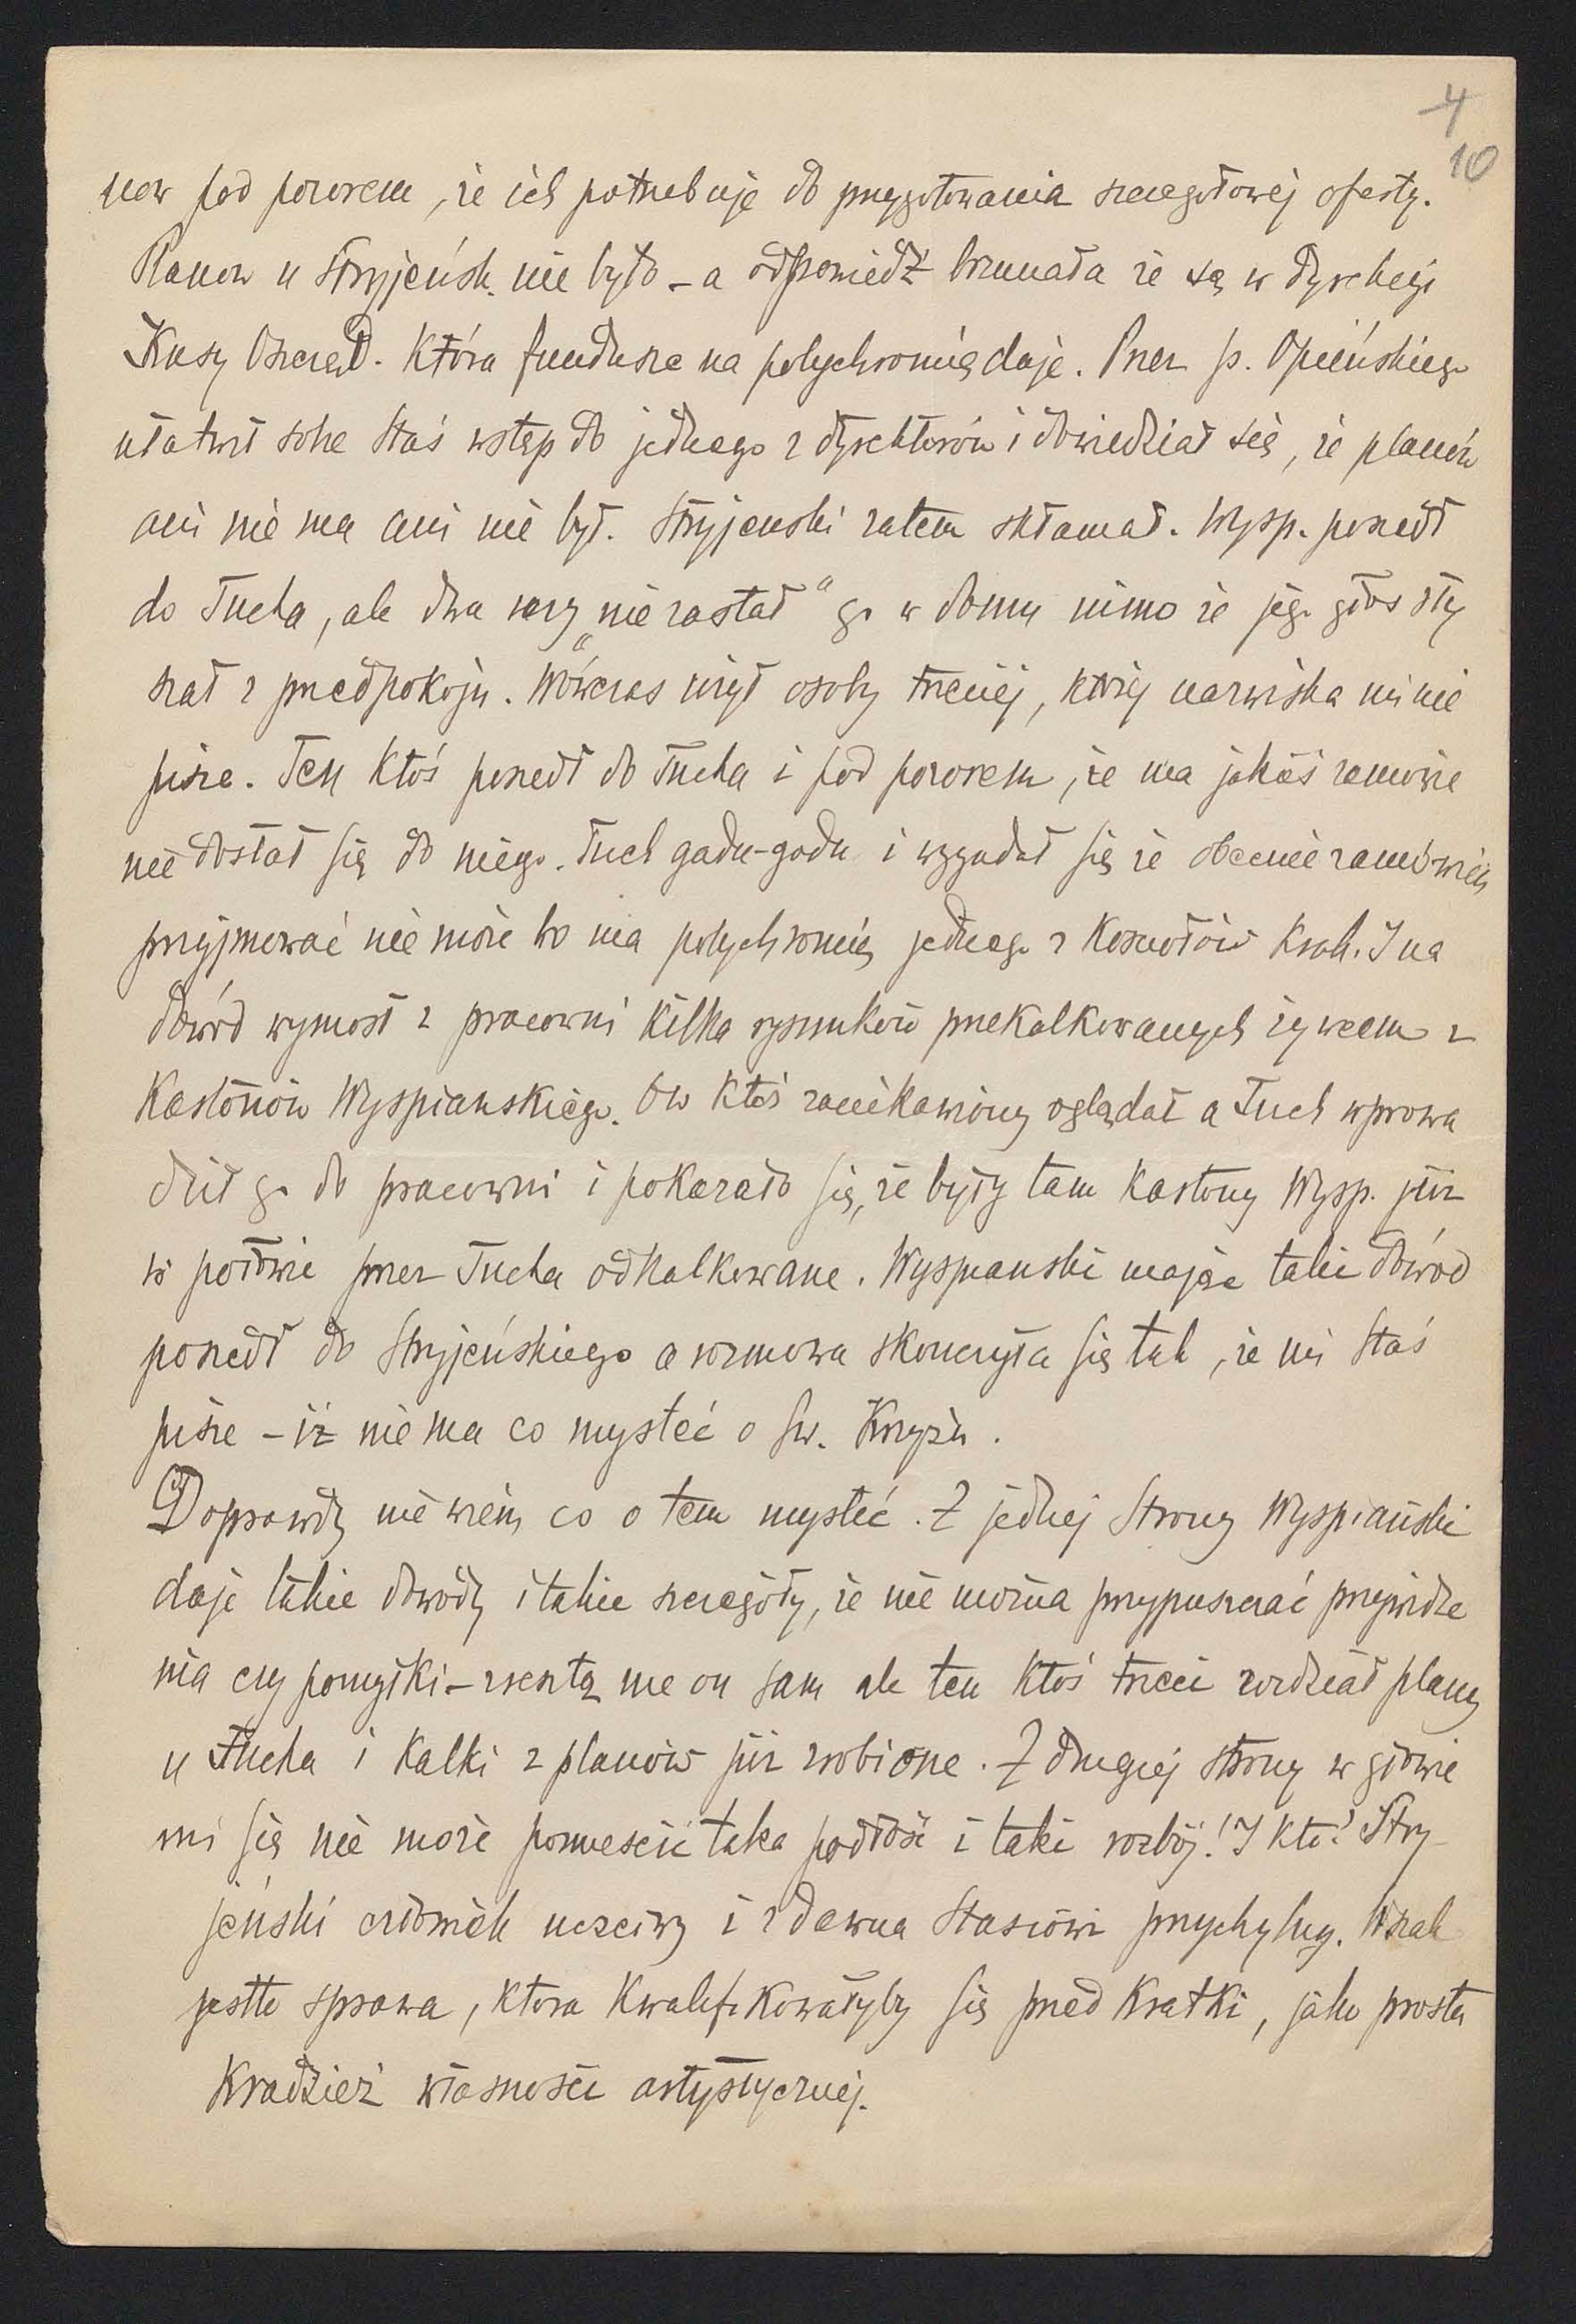 4
10
now pod pozorem, że ich potrzebuje do przygotowania szczegółowej oferty.
Planow u Stryjeńsk. nie było – a odpowiedź brzmiała że są w dyrekcyi
Kasy Oszczęd. która fundusze na polychromię daje. Przez p. Opieńskiego
ułatwił sobie Staś wstęp do jednego z dyrektorów i dowiedział się, że planów
ani nie ma ani nie był. Stryjenski zatem skłamał. Wysp. poszedł
do Tucha, ale dwa razy „nie zastał" go w domu mimo że jego głos sły
szał z przedpokoju. Wówczas użył osoby trzeciej, której nazwiska mi nie
pisze. Ten ktoś poszedł do Tucha i pod pozorem, że ma jakieś zamówie
nie dostał się do niego. Tuch gadu-gadu i wygadał się że obecnie zamówień
przyjmować nie może bo ma polychromię jednego z kosciołów krak. I na
dowód wyniosł z pracowni kilka rysunków przekalkowanych żywcem z
Kartonów Wyspianskiego. Ow ktoś zaciekawiony oglądał a Tuch wprowa
dził go do pracowni i pokazało się, że były tam kartony Wysp. już
w połowie przez Tucha odkalkowane. Wyspianski mając taki dowód
poszedł do Stryjeńskiego a rozmowa skonczyła się tak, że mi Staś
pisze – iż nie ma co mysleć o Sw. Krzyżu.
Doprawdy nie wiem co o tem mysleć. Z jednej strony Wyspiański
daje takie dowody i takie szczegóły, że nie można przypuszczać przywidze
nia czy pomyłki – zresztą nie on sam ale ten ktoś trzeci widział plany
u Tucha i kalki z planów już zrobione. Z drugiej strony w głowie
mi się nie może pomieścić taka podłość i taki rozbój! I kto? Stry-
jeński człowiek uczciwy i zdawna Stasiowi przychylny. Wszak
jestto sprawa, ktora kwalifikowałyby się przed kratki, jako prosta
Kradzież własności artystycznej.